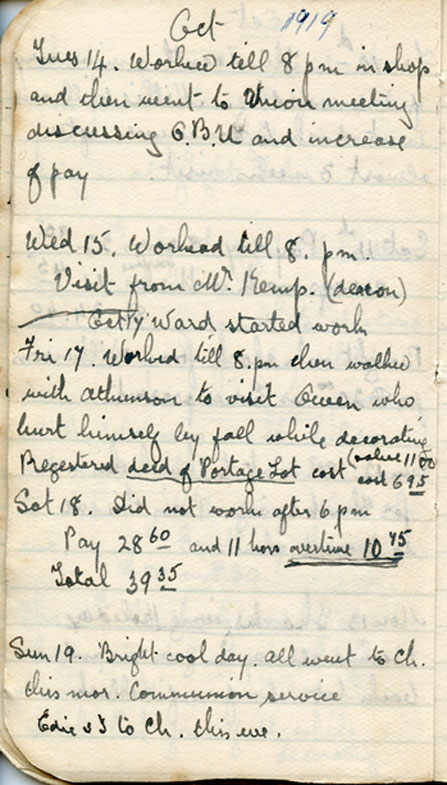 Oct 1919
Tues 14. Worked till 8 pm in shop
and then went to Union meeting
discussing O.B.U and increase
of pay
Wed 15. Worked till 8. pm.
Visit from Mr. Kemp. (deacon)
Ward started work
Fri 17. Worked till 8.pm then walked
with Atkinson to visit Queen who
hurt himself by fall while decorating
Regestered deed of Portage Lot cost (value 1100
cost 6 95
Sat 18. Did not work after 6 pm
Pay 28 60 and 11 hors overtime 10 75
Total 39 35
Sun 19. Bright cool day. All went to Ch.
this mor. Communion service
Edie & I to Ch. this eve.